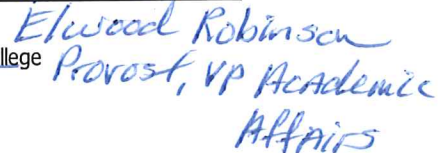 Elwood Robinson
llege Provost, VP Academic
Affairs